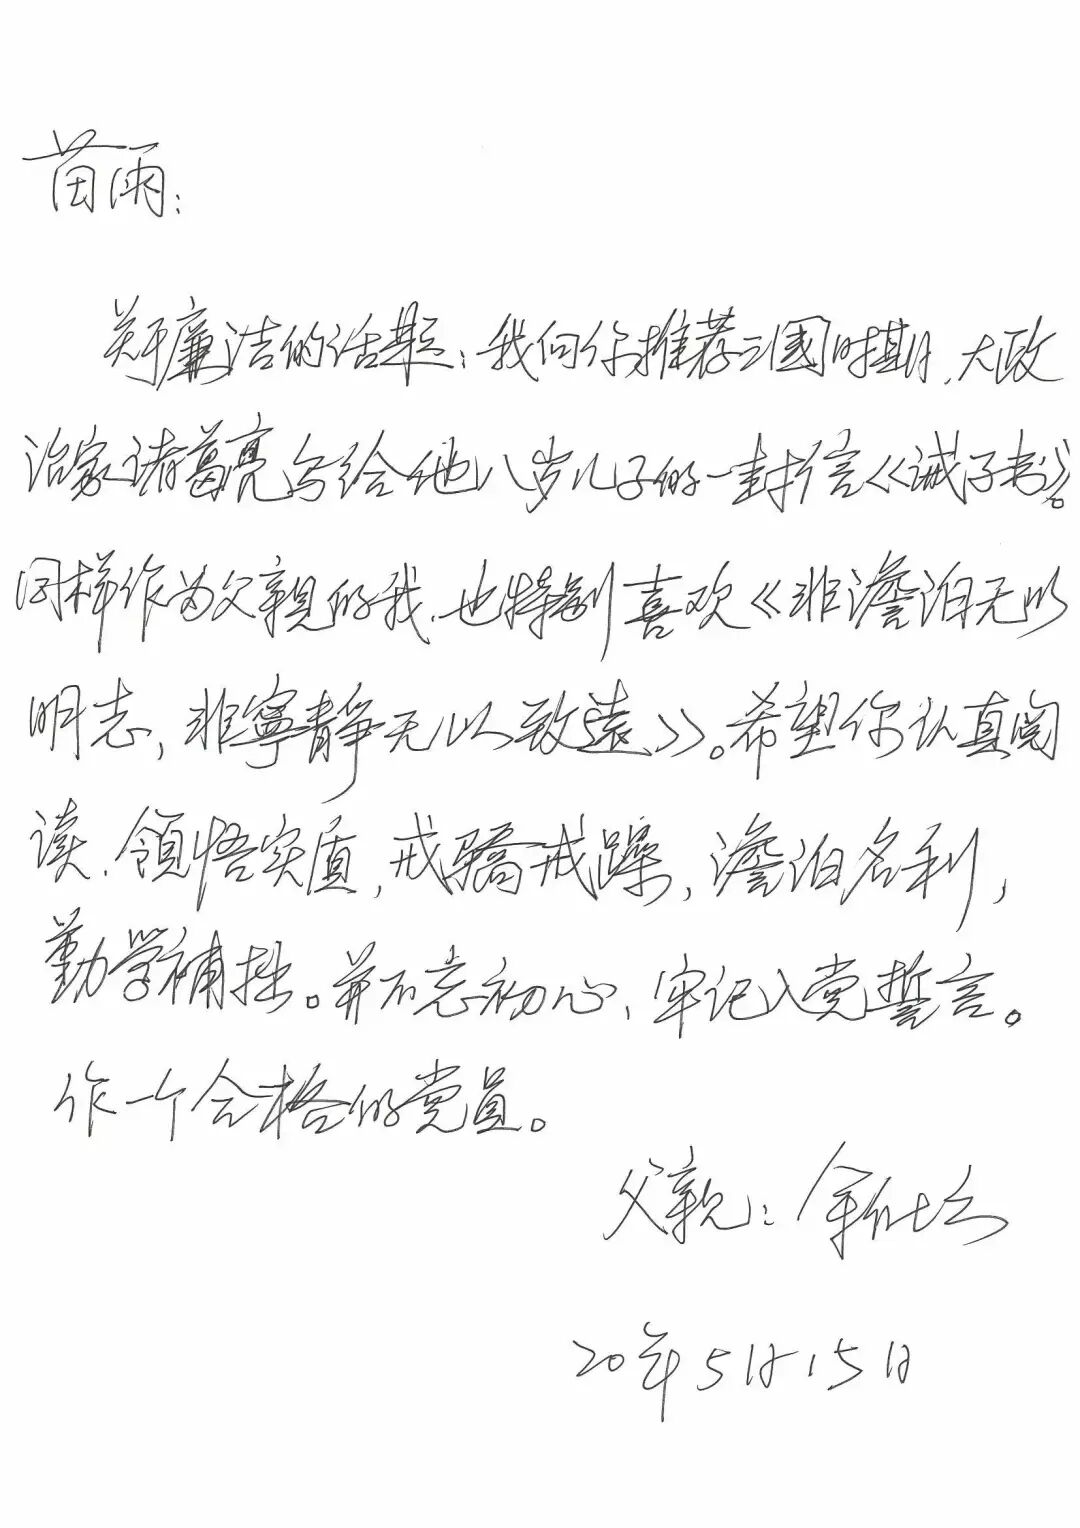 茵雨:
关于廉洁的话题:我向你推荐三國时期,大政
治家诸葛亮写给他八岁儿子的一封信《诫子书》。
同样作为父親的我,也特别喜欢《非澹泊无以
明志,非寧静无以致遠》。希望你认真阅
读.领悟实质,戒驕戒躁,澹泊名利,
勤学補拙。并不忘初心,牢记入党誓言。
作一个合格的党员。
父亲:余仕
20年5月15日